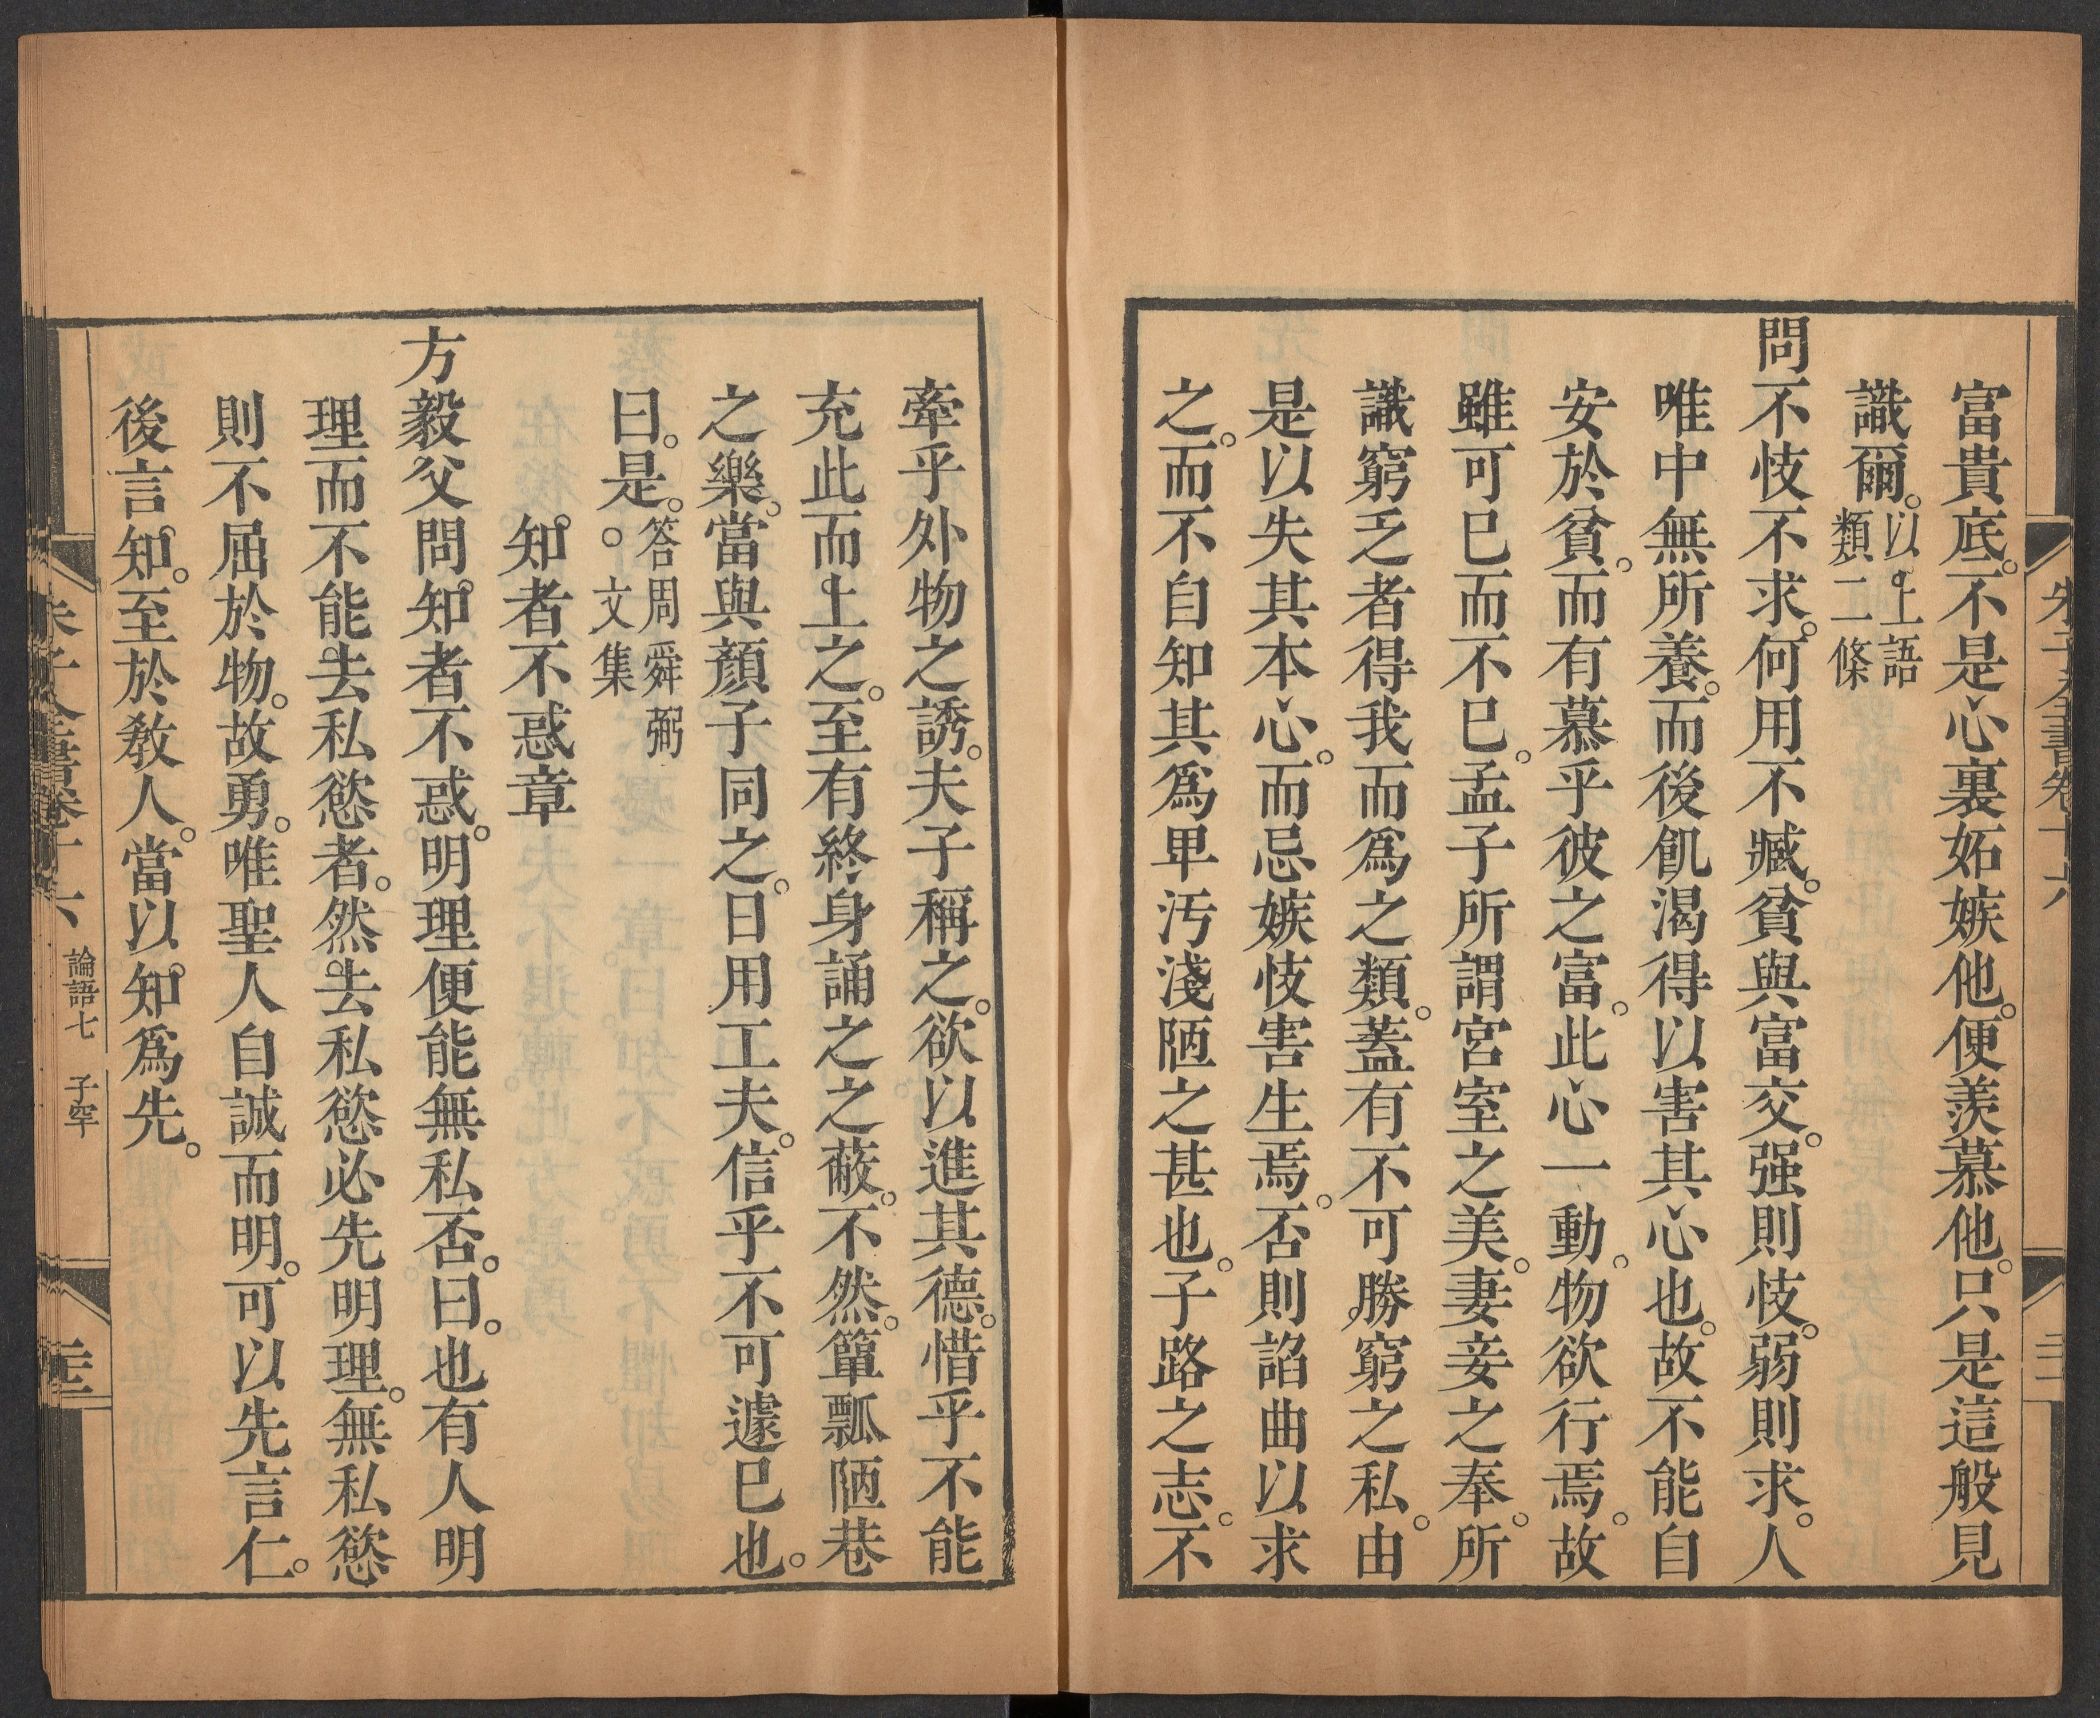 富貴底。不是心裏妬嫉他。便羨慕他。只是這般見
識爾。以上語類二條
問不忮不求。何用不臧。貧與富交。强則忮。弱則求。人
唯中無所養。而後飢渴得以害其心也。故不能自
安於貧。而有慕乎彼之富。此心一動。物欲行焉。故
雖可已而不已。孟子所謂宮室之美。妻妾之奉。所
識窮乏者得我而爲之類。蓋有不可勝窮之私。由
是以失其本心。而忌嫉忮害生焉。否則諂曲以求
之。而不自知其爲卑汚淺陋之甚也。子路之志。不
牽乎外物之誘。夫子稱之。欲以進其德。惜乎不能
充此而上之。至有終身誦之之蔽。不然。簞瓢陋巷
之樂。當與顏子同之。日用工夫。信乎不可遽已也。
曰。是。答周舜弼。文集
知者不惑章
方毅父問。知者不惑。明理便能無私否。曰。也有人明
理而不能去私慾者。然去私慾必先明理。無私慾
則不屈於物。故勇。唯聖人自誠而明。可以先言仁。
後言知。至於敎人。當以知爲先。
朱子全書卷十六 論語七 子罕